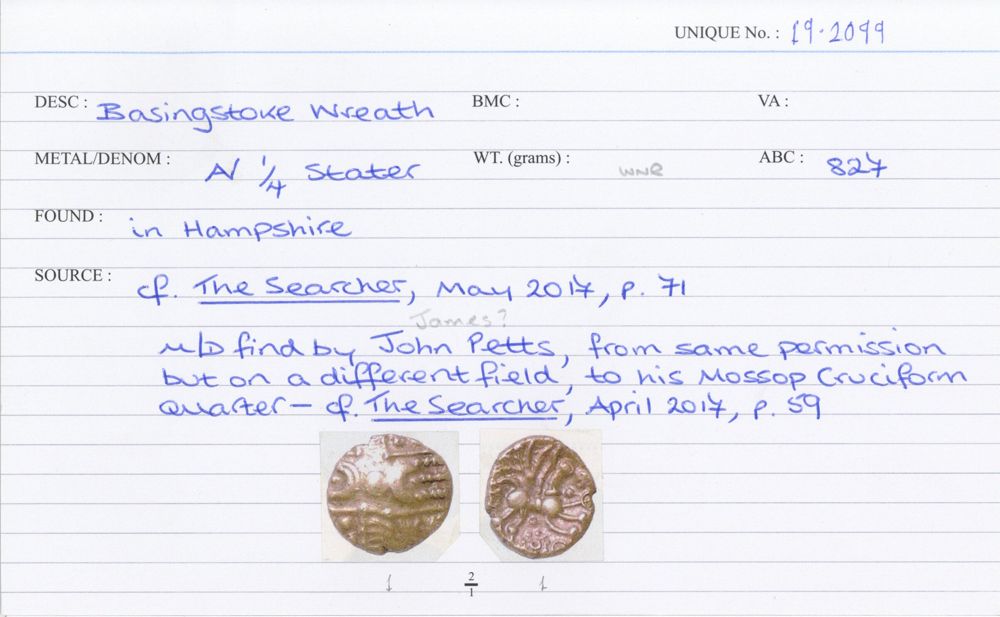 UNIQUE No. : 19·2099
DESC : Basingstoke Wreath BMC : VA :
METAL/DENOM : A/ 1/4 Stater WT. (grams) : WNR ABC : 827
FOUND : in Hampshire
SOURCE : cf. The Searcher, May 2017, p. 71
James?
M/D find by John Petts, from same permission
but on a different field, to his Mossop Cruciform
Quarter – cf. The Searcher, April 2017, p. 59
1 2/1 1